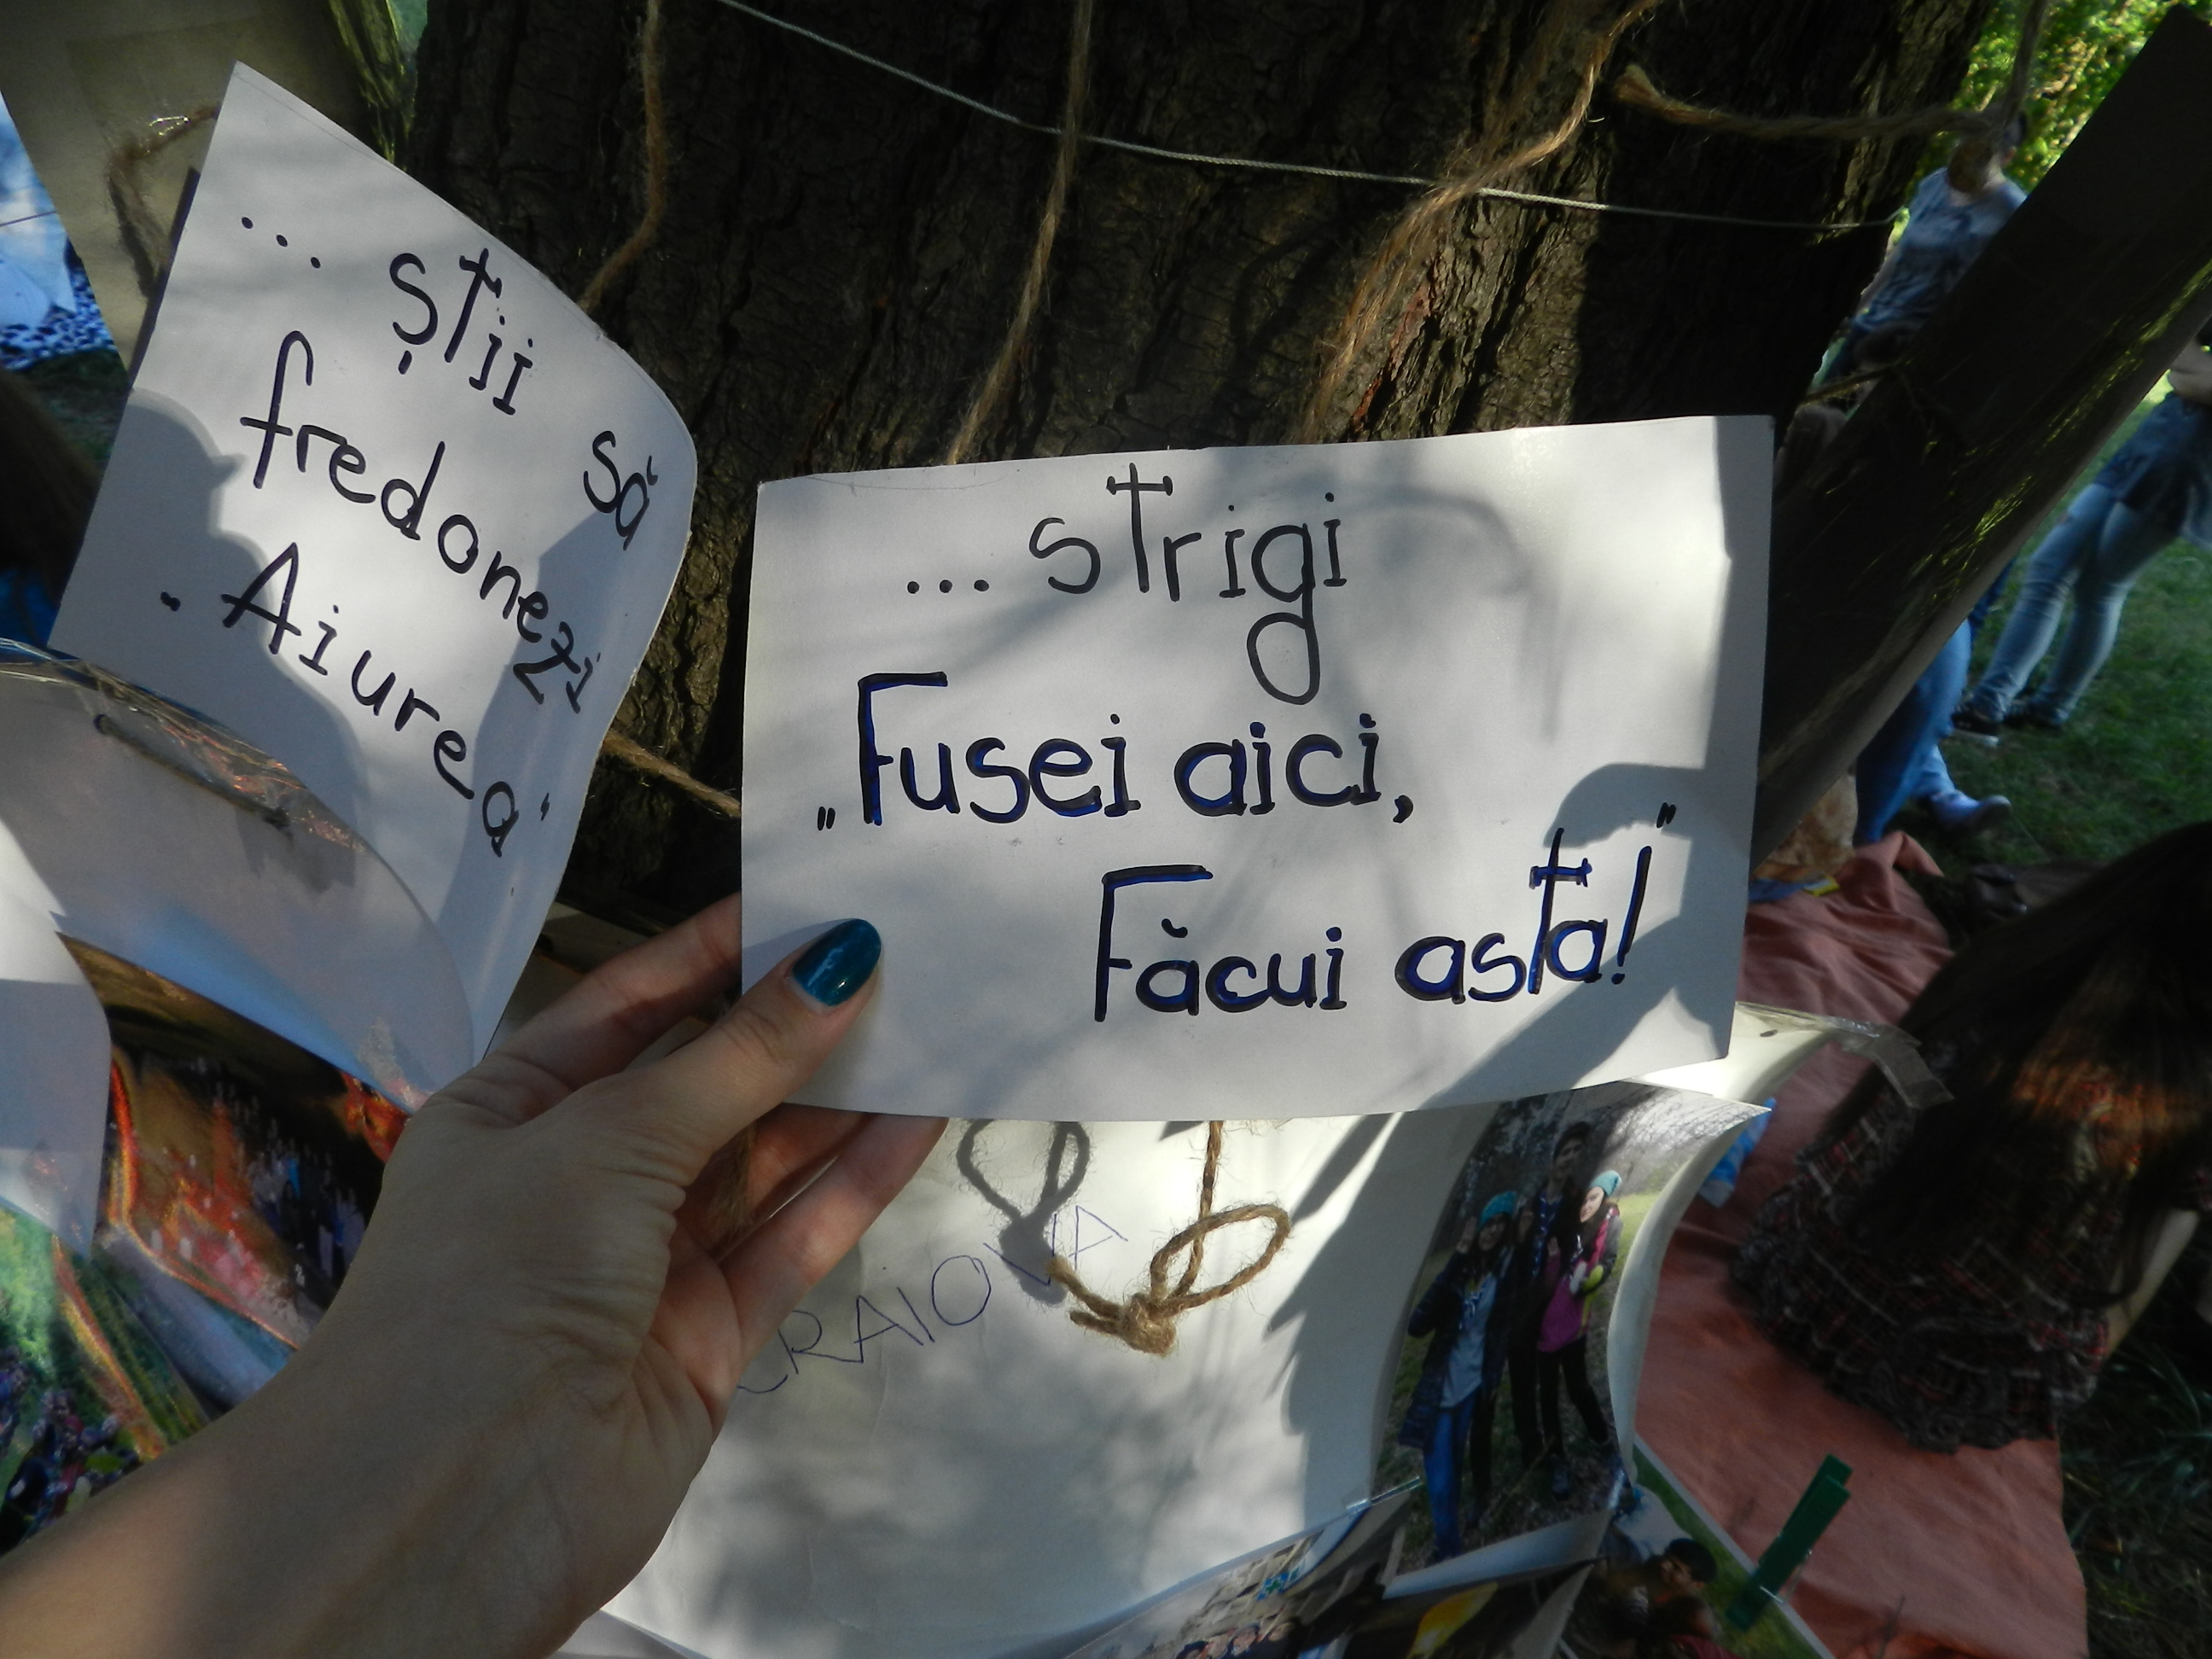 ... știi să
fredonezi
"Aiurea"
... strigi
„Fusei aici,
Făcui asta!"
CRAIOVA